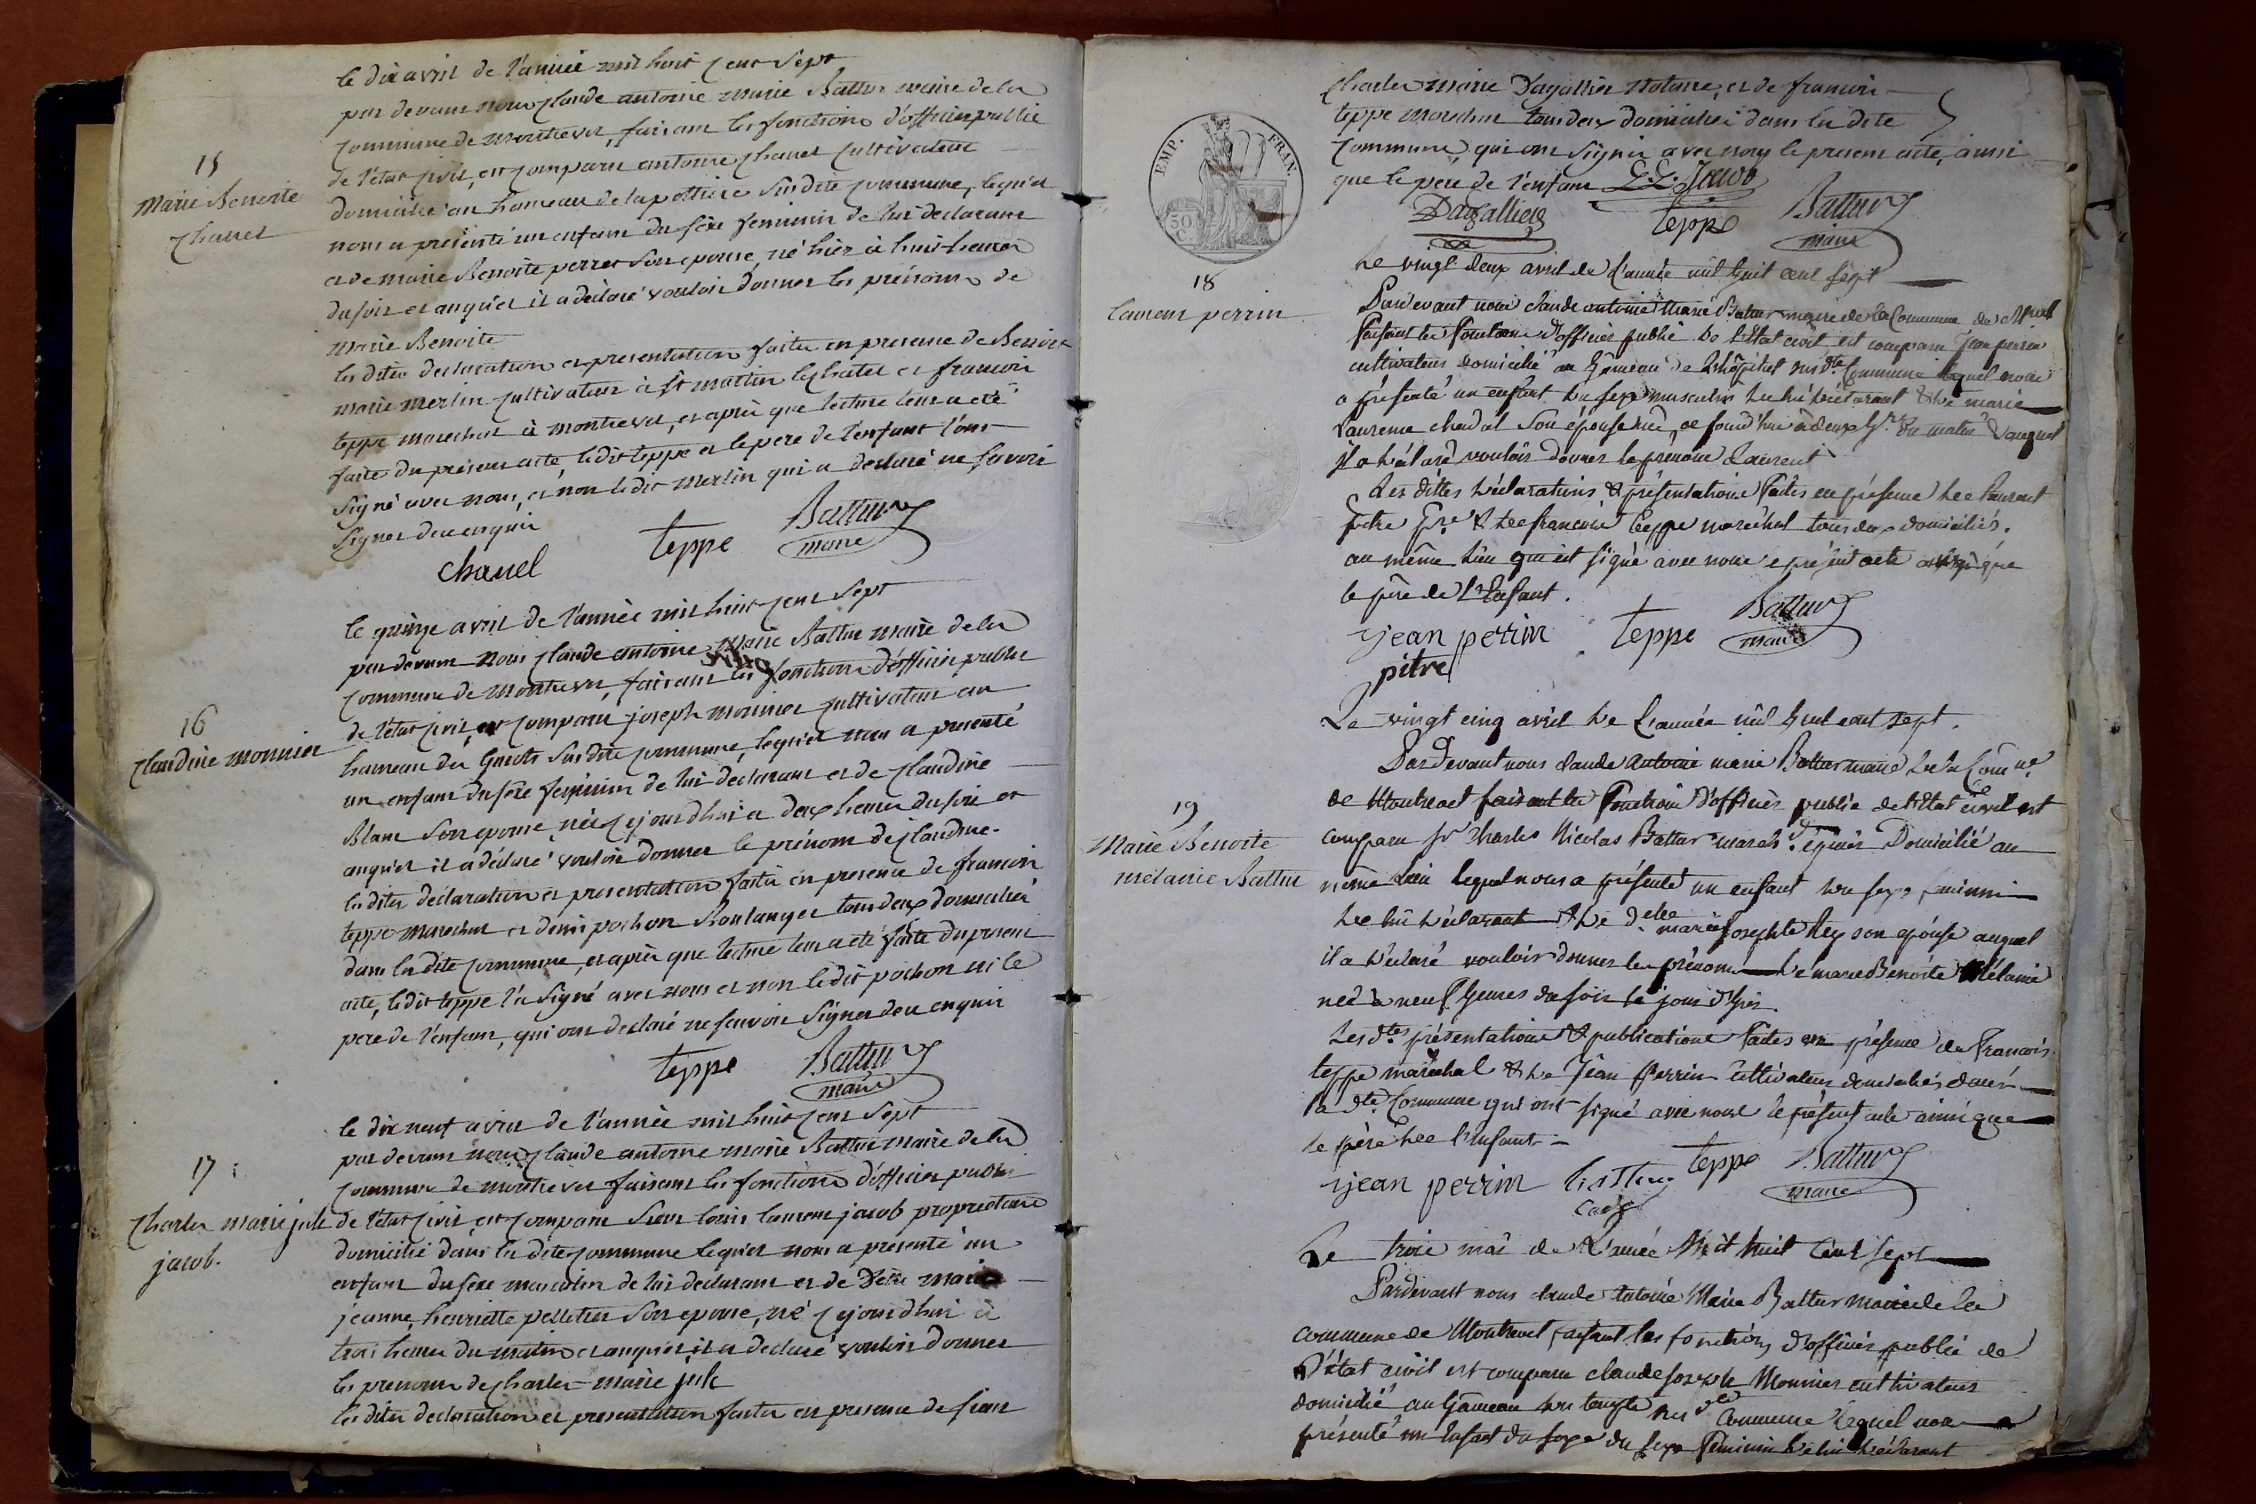 le dix avril de l'année mil huit cent sept
par devant nous claude antoine marie Battur maire de la
commune de montrevel, faisant les fonctions d'officier public
de l'état civil, est comparu antoine chanel cultivateur
domicilié au hameau de la susdite commune, lequel
nous a présenté un enfant du sexe feminin de lui declarant
et de marie Benoite perret son epouse, né hier à huit heures
du soir et auquel il a déclaré vouloir donner les prénoms de
marie Benoite
les dites declaration et presentation faites en presence de Benoit
marie merlin cultivateur à st martin le chatel et francois
teppe marechal à montrevel, et après que lecture leur a été
faite du présent acte, ledit teppe et le pere de l'enfant l'ont
signé avec nous, et non ledit merlin qui a declaré ne savoir
signer de ce enquis
chanel teppe Battur
maire
15
Marie Benoite
chanel
le quinze avril de l'année mil huit cent sept
par devant nous claude antoine marie Battur maire de la
commune de montrevel, faisant les fonctions d'officier public
de l'état civil, est comparu joseph monnier cultivateur au
hameau des susdite commune, lequel nous a presenté
un enfant du sexe feminin de lui déclarant et de claudine
Blanc son epouse, née cejourdhui a deux heures du soir et
auquel il a déclaré vouloir donner le prénom de claudine.
les dites déclaration et presentation faites en presence de francois
teppe marechal et denis pochon Boulanger tous deux domiciliés
dans la dite commune, et après que lecture leur a été faite du present
acte, ledit teppe l'a signé avec nous et non ledit pochon ni le
pere de l'enfant, qui ont declaré ne savoir signer de ce enquis
teppe Battur
maire
16
claudine monnier
le dix neuf avril de l'année mil huit cent sept
par devant nous claude antoine marie Battur maire de la
commune de montrevel faisant les fonctions d'officier public
de l'état civil, est comparu sieur louis laurent jacob proprietaire
domicilié dans la dite commune lequel nous a presenté un
enfant du sexe masculin de lui declarant et de Delle marie
jeanne henriette pelletier son epouse, né cejourdhui à
trois heures du matin et auquel il a declaré vouloir donner
les prenoms de charles marie jule
les dites declaration et presentation faites en presence de sieur
17
charles marie jule
jacob.
charles marie Dagallier notaire, et de francois
teppe marechal tous deux domiciliés dans la dite
commune, qui ont signé avec nous le present acte, ainsi
que le pere de l'enfant L.L. Jacob
Dagallier teppe Battur
maire
EMP. FRAN.
50 C
Le vingt deux avril de l'année mil huit cent sept
Pardevant nous claude antoine Marie Battur maire de la Commune de
faisant les fonctions d'officier public de l'Etat civil est comparu Jean perrin
cultivateur domicilié au hameau de l'hôpital susdte Commune lequel nous
a présenté un enfant du sexe masculin de lui déclarant & de marie
laurence chadal son épouse né ce jourd'hui à deux hres du matin auquel
il a déclaré vouloir donner le prenom Laurent
Les dittes déclarations & présentations faites en présence de Laurent
& de francois teppe maréchal tous deux domiciliés
au même lieu qui ont signé avec nous le présent acte ainsi que
le père de l'Enfant.
jean perrin teppe Battur
pitre maire
18
laurent perrin
Le vingt cinq avril de l'année mil huit cent sept.
Pardevant nous claude antoine marie Battur maire de la Comne
de Montrevel faisant les fonctions d'officier public de l'Etat civil est
comparu Sr Charles Nicolas Battur Domicilié au
même lieu lequel nous a présenté un enfant du sexe feminin
de lui déclarant & de Delle marie Josephte son épouse auquel
il a déclaré vouloir donner les prénoms de marie Benoite Mélanie
née à neuf heures du soir le jour d'hier
Les dtes présentations & publications faites en présence de François
teppe maréchal & de Jean perrin cultivateur domiciliés dans
la dte Commune qui ont signé avec nous le présent acte ainsi que
le père de l'Enfant
jean perrin Battur teppe Battur
cadet maire
19
Marie Benoite
mélanie Battur
Le trois mai de l'année Mil huit Cent sept
Pardevant nous claude antoine Marie Battur maire de la
commune de Montrevel faisant les fonctions d'officier public de
l'état civil est comparu claude Joseph Monnier cultivateur
domicilié au hameau du temple susdte Commune lequel nous a
présenté un Enfant du sexe du sexe féminin de lui déclarant